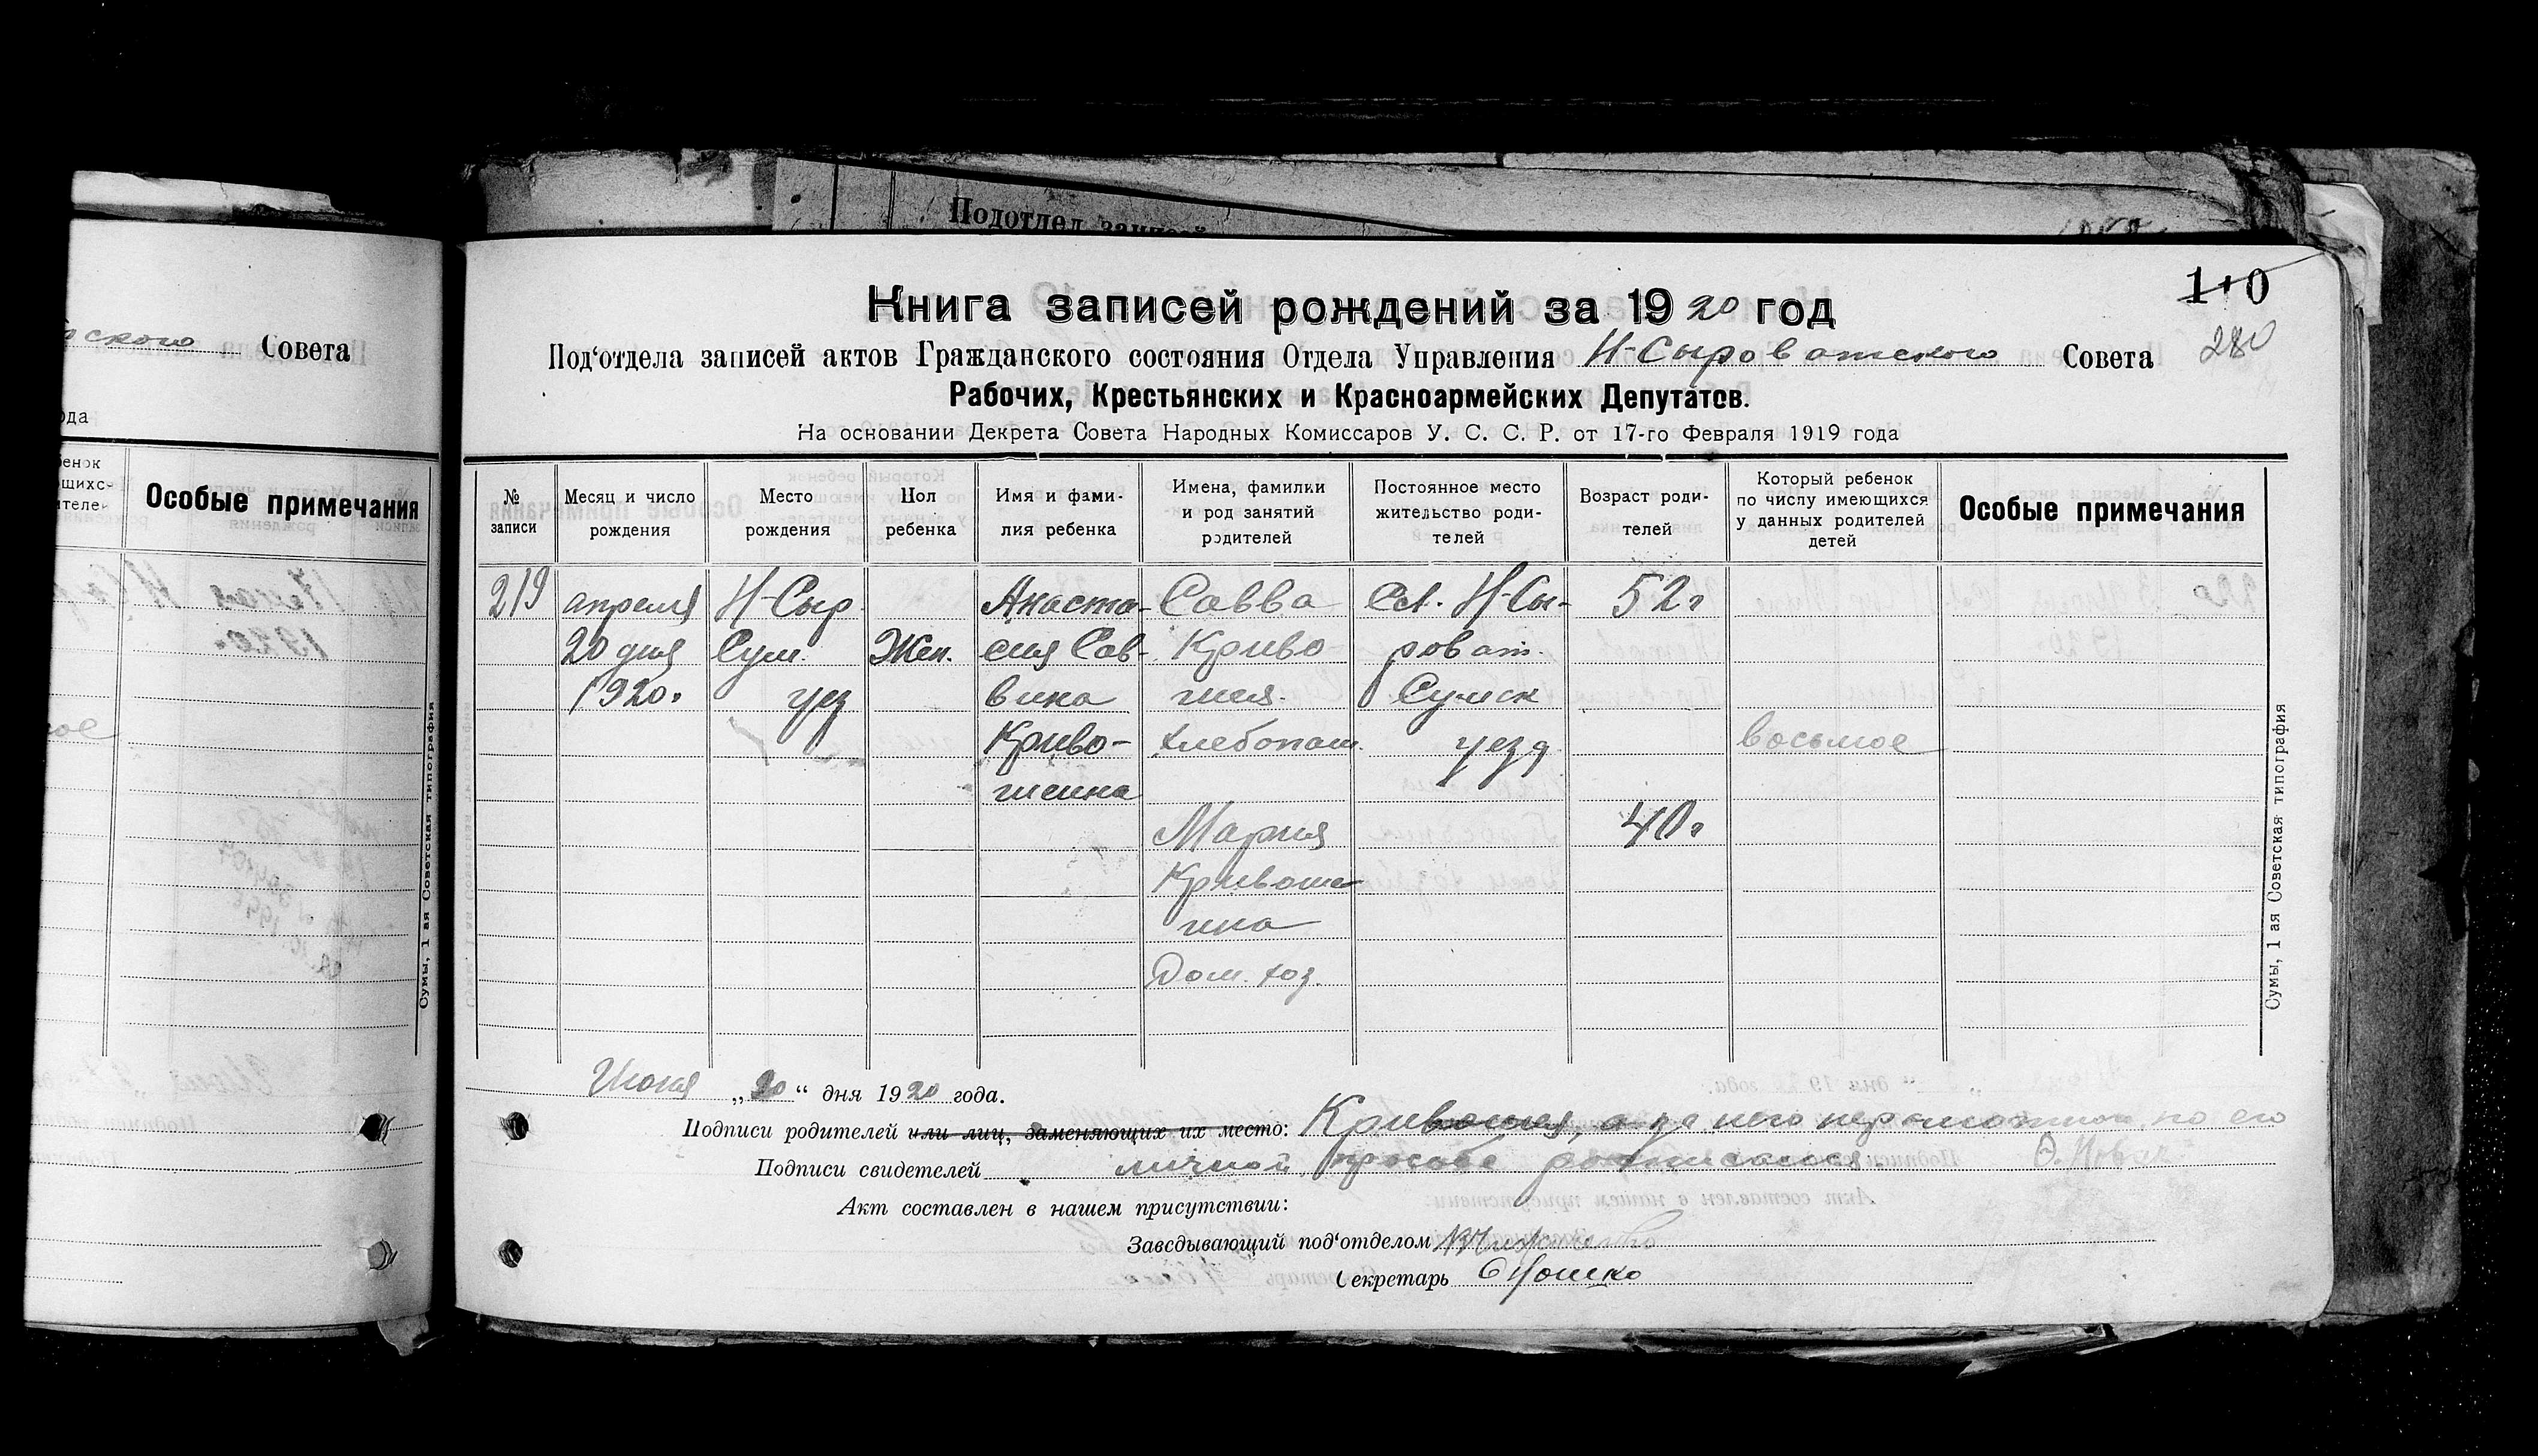 Подотдел
1+0
280
Книга записей рождений за 1920 год
Под‘отдела записей актов Гражданского состояния Отдела Управления Н-Сыроватского Совета
Рабочих, Крестьянских и Красноармейских Депутатов.
На основании Декрета Совета Народных Комиссаров У. С. С. Р. от 17-го Февраля 1919 года
№ записи
Месяц и число рождения
Место рождения
Пол ребенка
Имя и фами-
лия ребенка
Имена, фамилии
и род занятий
родителей
Постоянное место
жительство роди-
телей
Возраст роди-
телей
Который ребенок
по числу имеющихся
у данных родителей
детей
Особые примечания
219
апреля
20 дня
1920г
Н-Сыр
Сум.
уез
Жен.
Анаста-
сия Сав-
вина
Криво-
шеина
Савва
Криво-
шея.
хлебопаш.
Мария
Кривоше
ина
Дом. хоз.
Сл. Н-Сы-
роват.
Сумск
уезд
52г
40г
восьмое
Июня „20“ дня 1920 года.
Подписи родителей или лиц, заменяющих их место: Кривошея, а за него неграмотного по его
Подписи свидетелей личной просьбе расписался
Акт составлен в нашем присутствии:
Заведывающий под‘отделом
Секретарь
Сумы, 1 ая Советская типография
ского Совета
ода
бенок
ющихс-
ителе
Особые примечания
ое
Сумы, 1 ая Советская типография